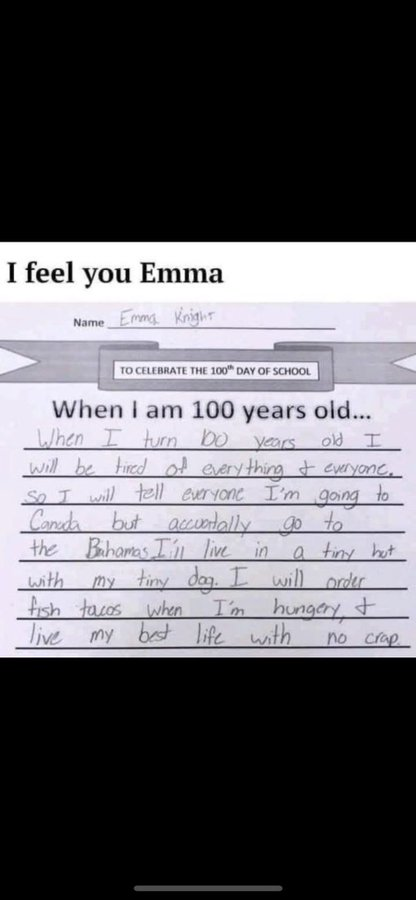 I feel you Emma
Name Emma Knight
TO CELEBRATE THE 100th DAY OF SCHOOL
When I am 100 years old...
When I turn 100 years old I
will be tired of everything & everyone.
so I will tell everyone I'm going to
Canada but accuntally go to
the Bahamas. I'll live in a tiny hut
with my tiny dog. I will order
fish tacos when I'm hungery, &
live my best life with no crap.